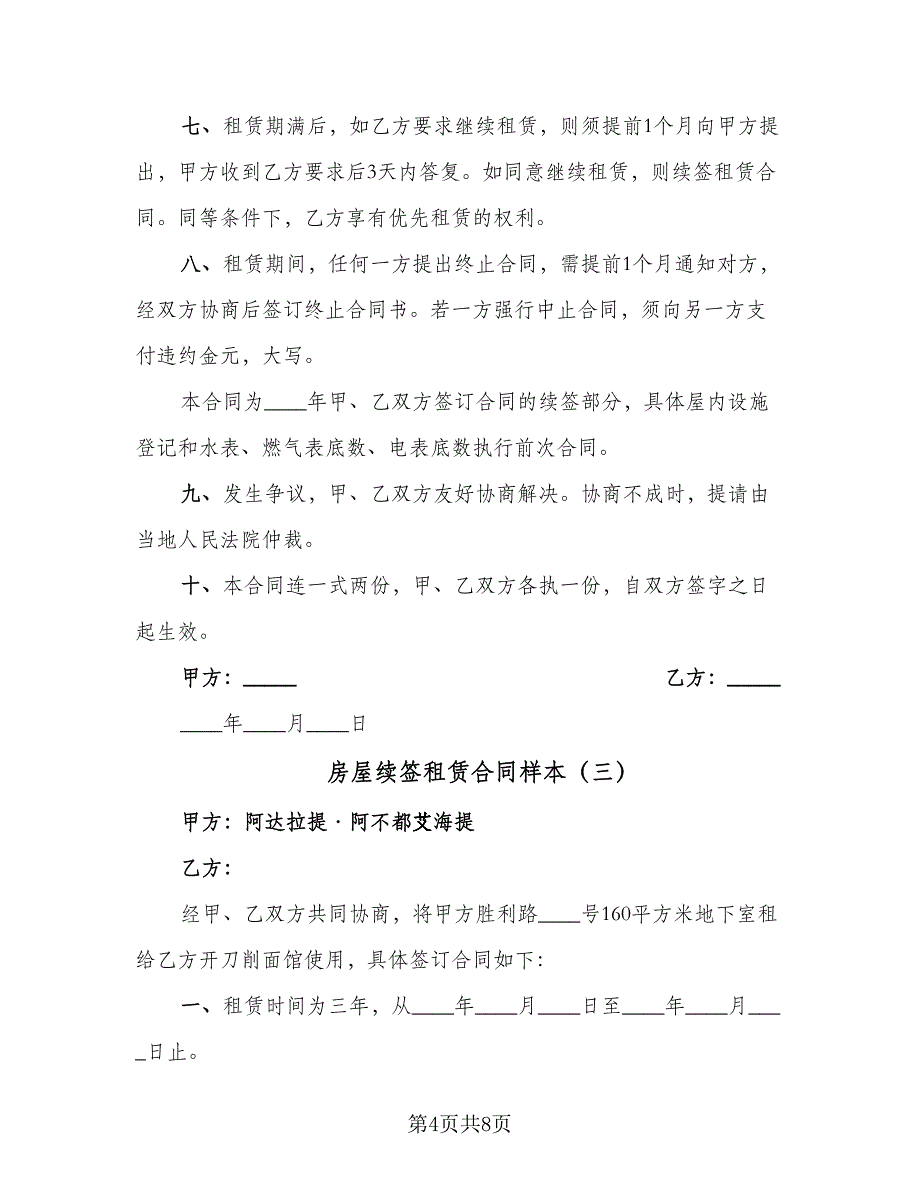 七、租赁期满后，如乙方要求继续租赁，则须提前1个月向甲方提
出，甲方收到乙方要求后3天内答复。如同意继续租赁，则续签租赁合
同。同等条件下，乙方享有优先租赁的权利。
八、租赁期间，任何一方提出终止合同，需提前1个月通知对方，
经双方协商后签订终止合同书。若一方强行中止合同，须向另一方支
付违约金元，大写。
本合同为____年甲、乙双方签订合同的续签部分，具体屋内设施
登记和水表、燃气表底数、电表底数执行前次合同。
九、发生争议，甲、乙双方友好协商解决。协商不成时，提请由
当地人民法院仲裁。
十、本合同连一式两份，甲、乙双方各执一份，自双方签字之日
起生效。
甲方：_____ 乙方：_____
____年____月____日
房屋续签租赁合同样本（三）
甲方：阿达拉提·阿不都艾海提
乙方：
经甲、乙双方共同协商，将甲方胜利路____号160平方米地下室租
给乙方开刀削面馆使用，具体签订合同如下：
一、租赁时间为三年，从____年____月____日至____年____月___
_日止。
第4页共8页